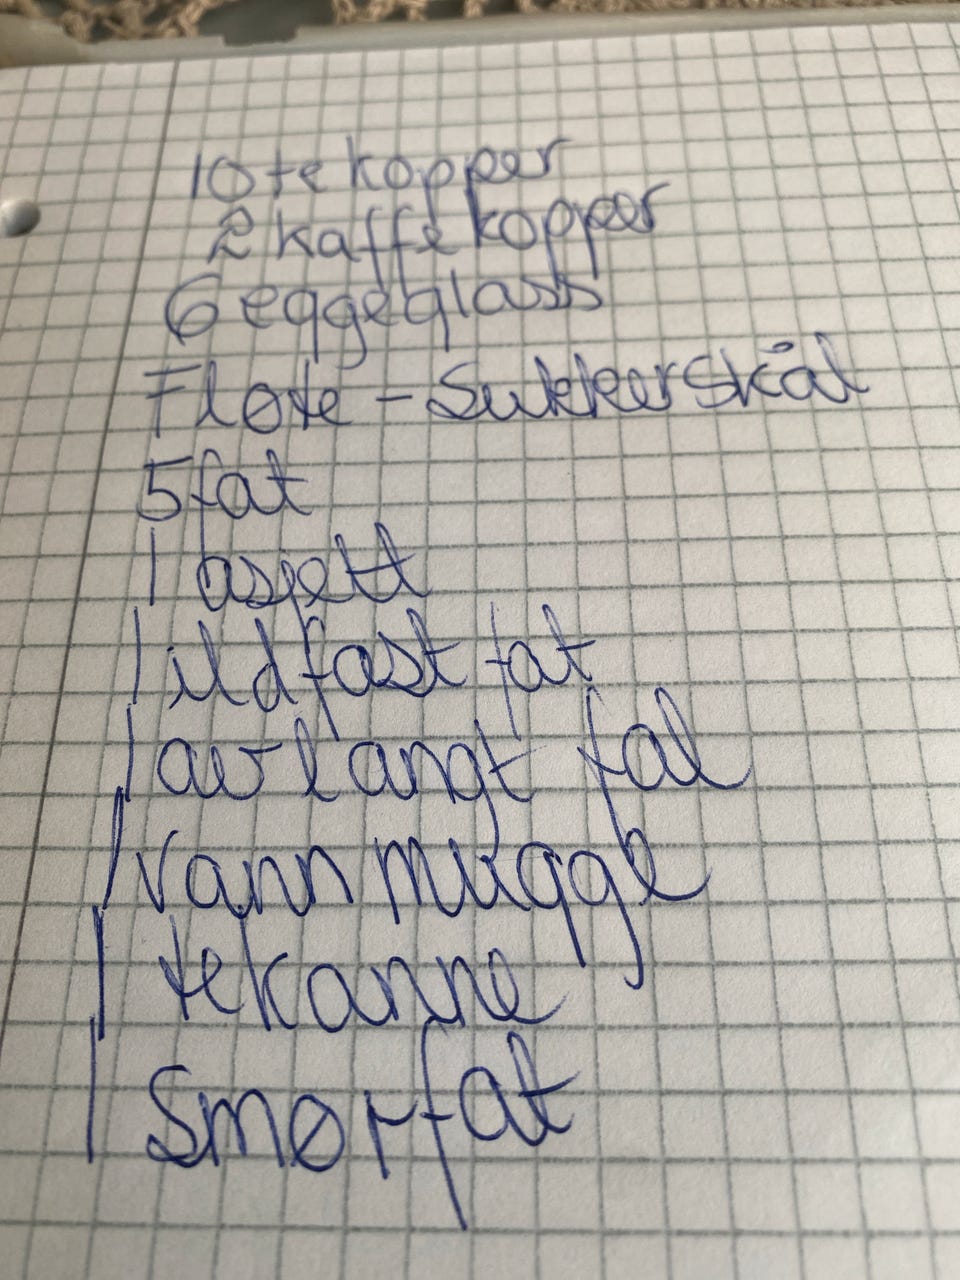 10 te kopper
2 kaffe kopper
6 eggeglass
Fløte - Sukkerskål
5 fat
1 asjett
1 ildfast fat
1 avlangt fat
1 vann mugge
1 tekanne
1 smørfat